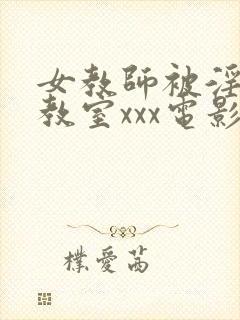 女教師被淫
教室xxx電影
樸愛茜